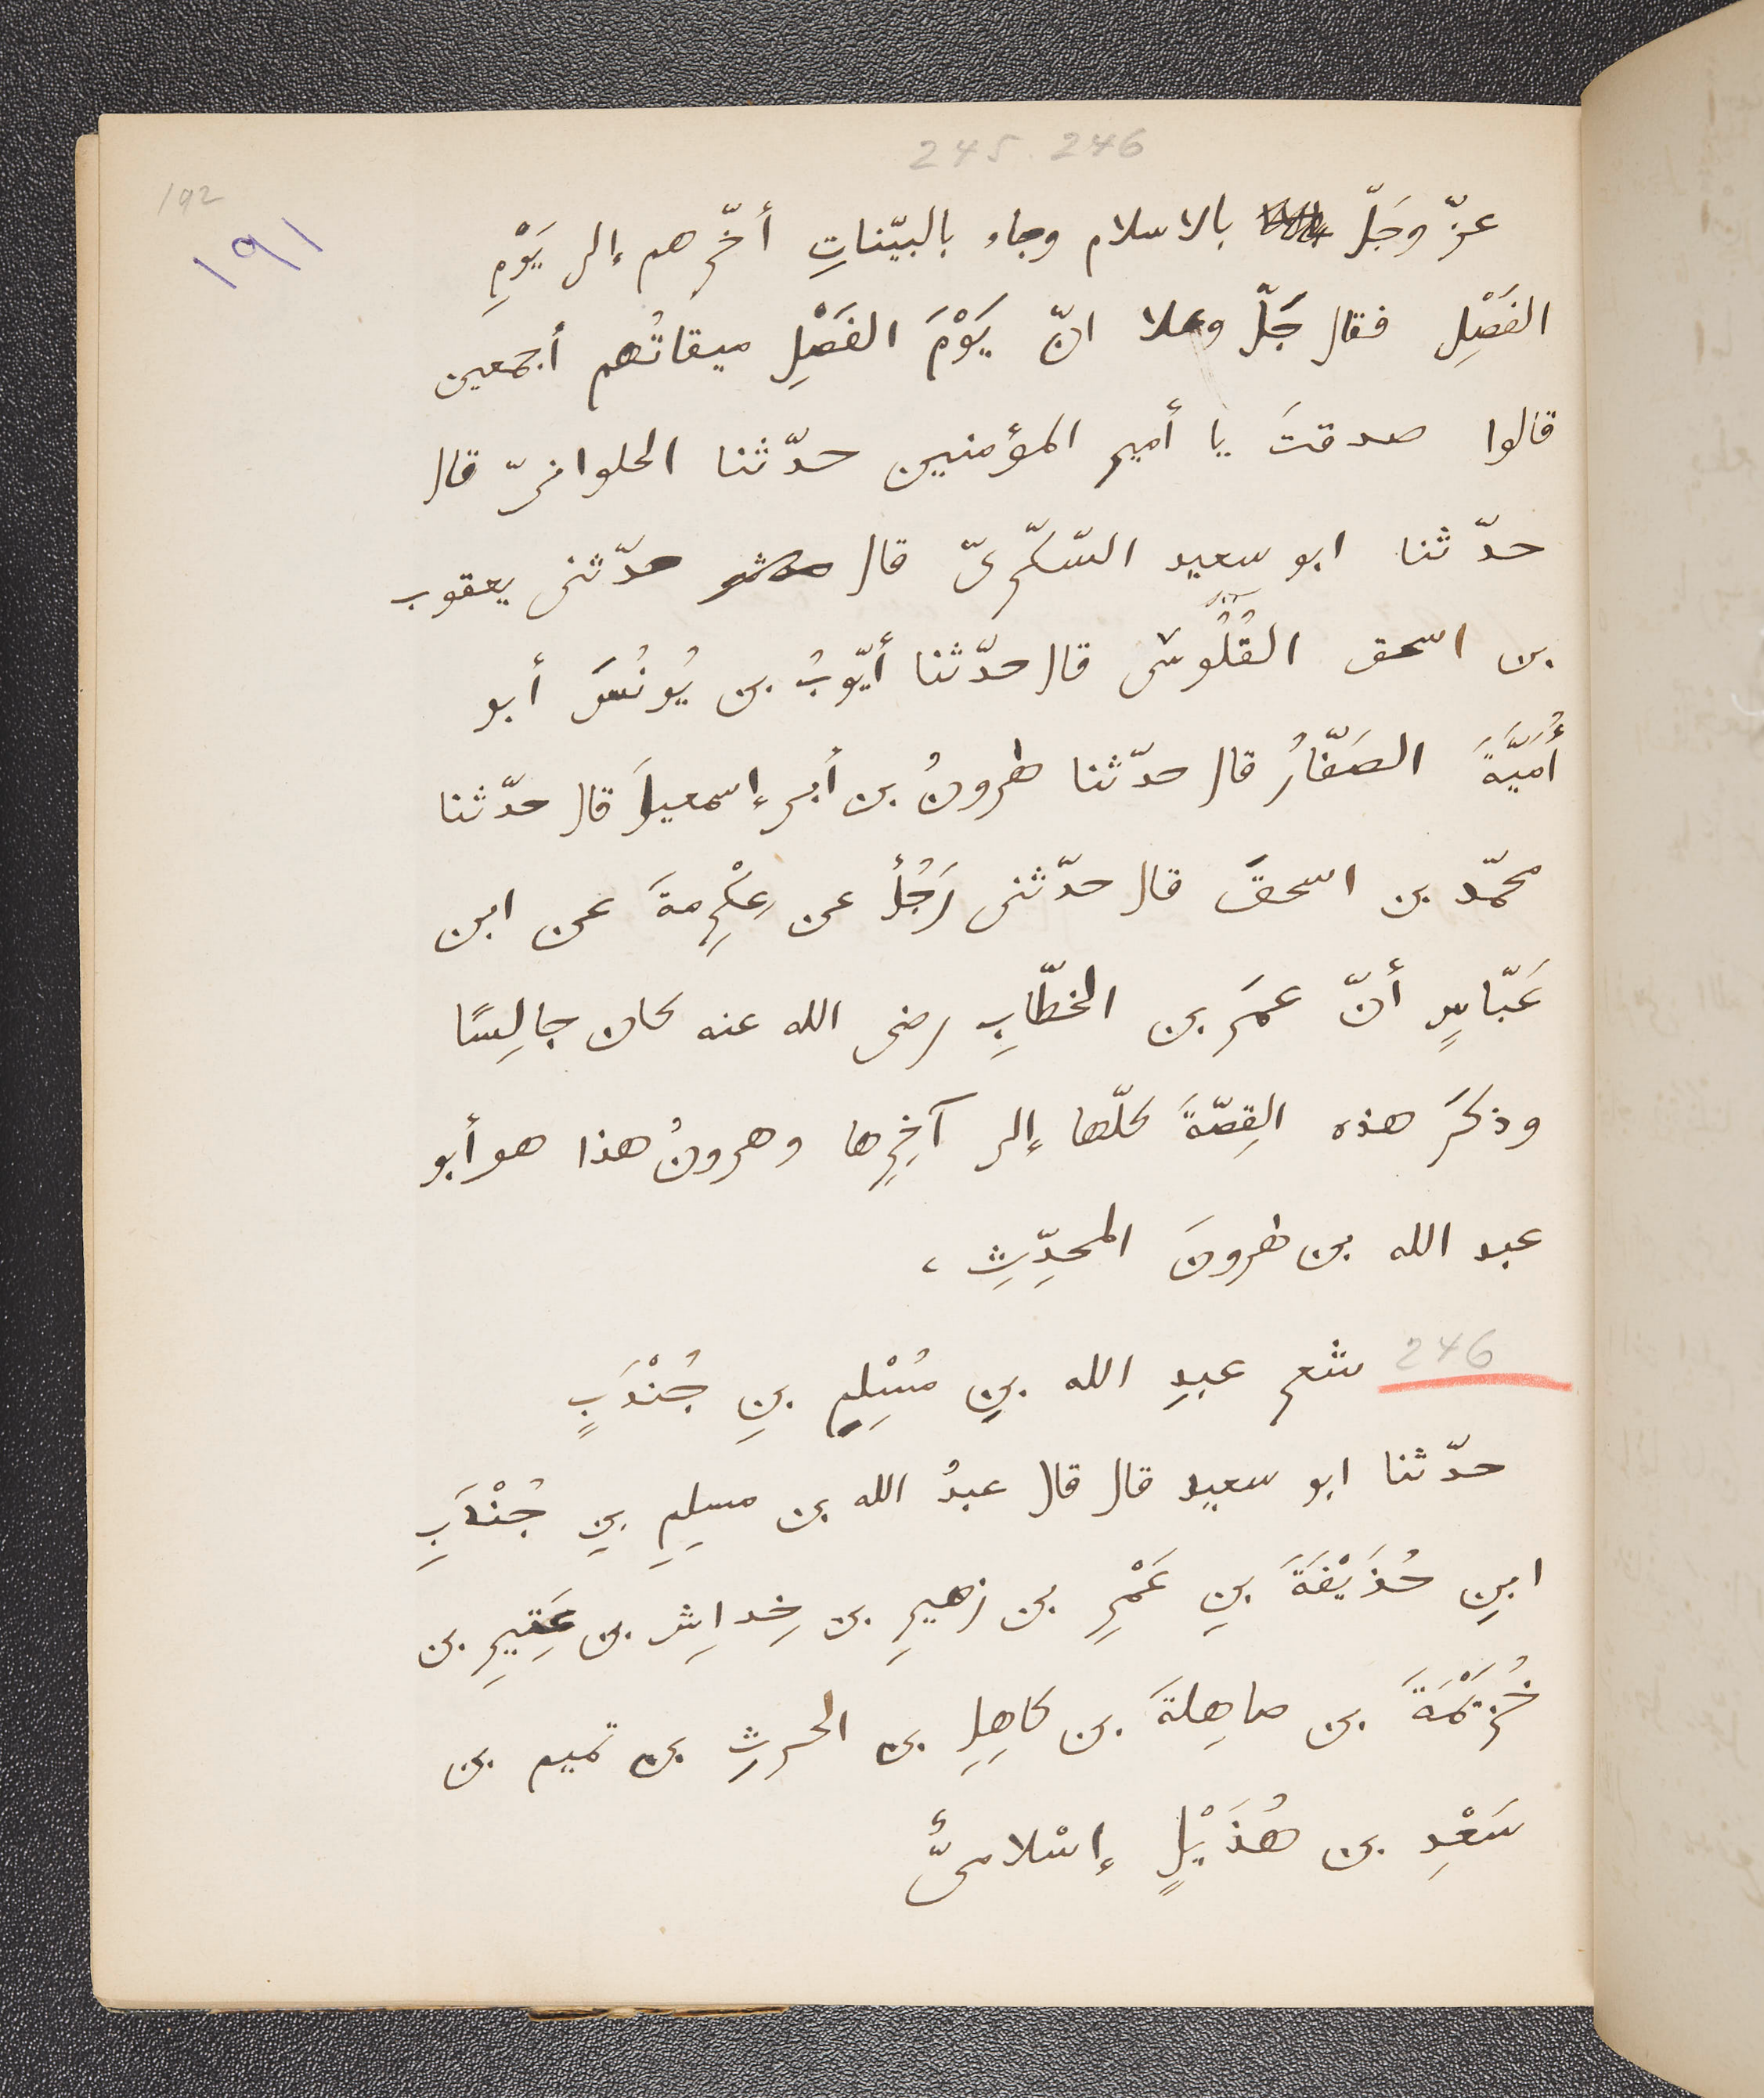 245. 246
192
١٩١
عزّ وجَلّ بالاسلام وجاء بالبيّناتِ أخّرهم إلى يَوْمِ
الفَصْلِ فقال جَلّ وعلا انّ يَوْمَ الفَصْلِ ميقاتُهم أجمعين
قالوا صدقتَ يا أمير المؤمنين حدّثنا الحلوانىّ قال
حدّثنا ابو سعيد السّكّرىّ قال حدّثنى يعقوب
بن اسحق القُلُوسى قال حدّثنا أيّوبُ بن يُونُسَ أبو
أُمَيَّةَ الصَفّارُ قال حدّثنا هرونُ بن أبى إسمعيلَ قال حدّثنا
محمّد بن اسحقَ قال حدّثنى رَجُلٌ عن عِكْرِمةَ عن ابن
عَبّاسٍ أنّ عمَر بن الخطّابِ رضى الله عنه كان جالِسًا
وذكَرَ هذه القِصّةَ كلّها إلى آخِرِها وهرونُ هذا هو أبو
عبد الله بن هرونَ المحدِّثِ،
246 شعر عبدِ الله بنِ مُسْلِمِ بنِ جُنْدَبٍ
حدّثنا ابو سعيد قال قال عبدُ الله بن مسلِمِ بنِ جُنْدَبِ
ابنِ حُذَيْفَةَ بنِ عَمْرِ بن زهيرِ بن خِداشِ بن عَتِيرِ بن
خُزَيْمَةَ بن صاهِلةَ بن كاهِلِ بن الحرثِ بن تميم بن
سَعْدِ بن هُذَيْلٍ إسْلامىٌّ